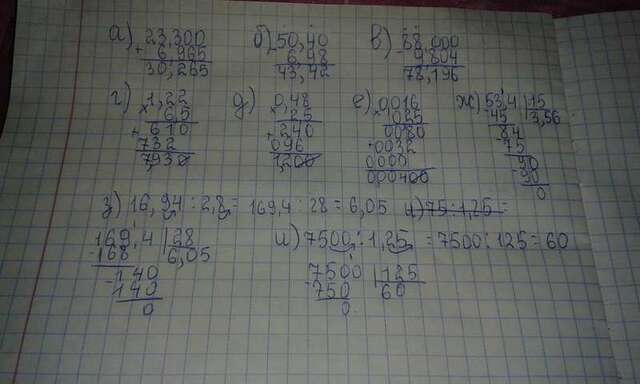 а) 23,300 б) 50,40 в) 88,000
+ 6,965 - 6,98 - 9,804
30,265 43,42 78,196
г) 1,22 д) 0,48 е) 0,016 ж) 53,4 | 15
× 6,5 × 25 × 0,25 - 45 3,56
+ 610 + 240 0080 84
732 096 + 0032 - 75
7,930 12,00 0000 90
000400 - 90
0
з) 16,94 : 2,8 = 169,4 : 28 = 6,05 и) 75 : 1,25 =
169,4 | 28 и) 7500 : 1,25 = 7500 : 125 = 60
- 168 6,05
- 140 7500 | 125
140 - 750 60
0 0